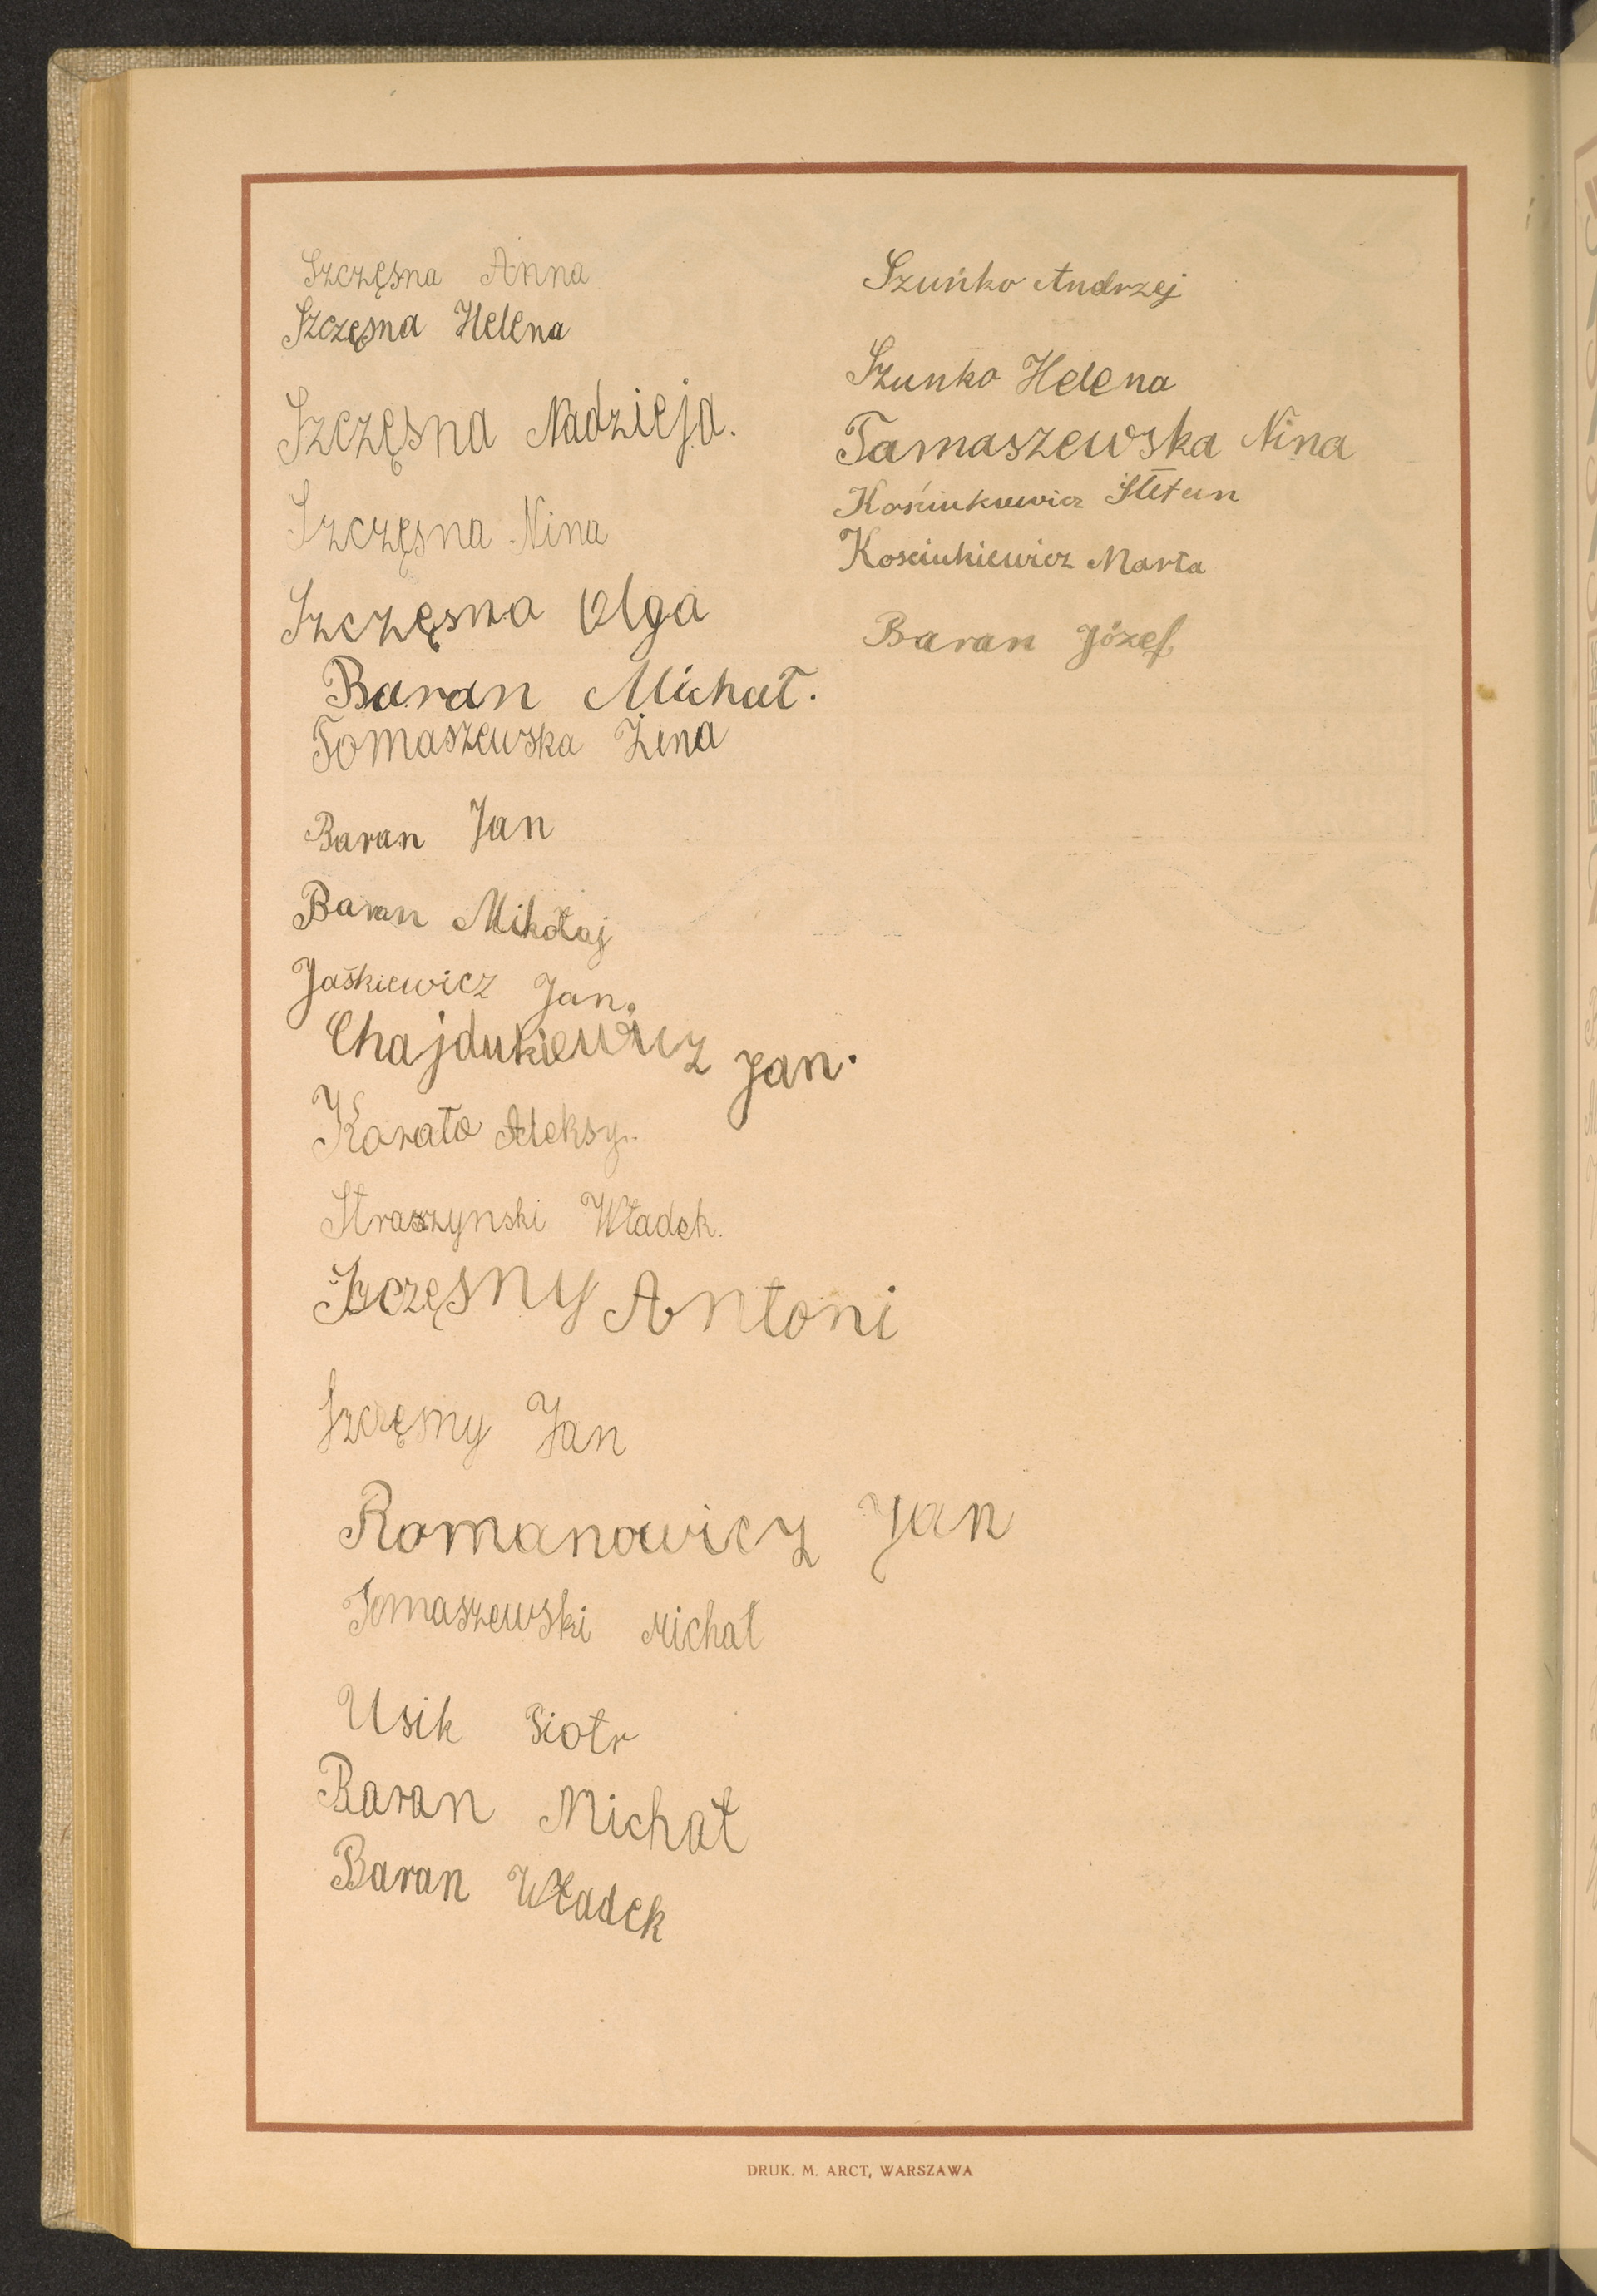 Szczęsna Anna
Szczęsna Helena
Szczęsna Nadzieja.
Szczęsna Nina
Szczęsna Olga
Baran Michał.
Tomaszewska Żena
Baran Jan
Baran Mikołaj
Jaśkiewicz Jan.
Chajdukiewicz Jan.
Korato Aleksy.
Straszynski Władek.
Szczęsny Antoni
Szczęsny Jan
Romanowicz Jan
Tomaszewski Michał
Usik Piotr
Baran Michał
Baran Władek
Szuńko Andrzej
Szunko Helena
Tamaszewska Nina
Kościukiewicz Stefan
Kosciukiewicz Marta
Baran Józef
DRUK. M. ARCT, WARSZAWA